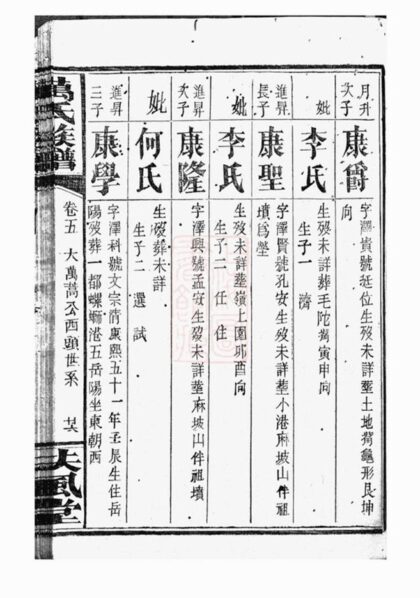 月升
次子
康爵
字澤貴號莚位生歿未詳塟土地蒟龜形艮坤
向
妣
李氏
生歿未詳葬毛陀蒟寅申向
生子一 濟
進昇
長子
康聖
字澤賢號孔安生歿未詳塟小港麻坡山伴祖
墳爲塋
妣
李氏
生歿未詳塟嶺上園卯酉向
生子二 任 住
進昇
次子
康隆
字澤興號孟安生歿未詳塟麻坡山伴祖墳
妣
何氏
生歿葬未詳
生子二 選 試
進昇
三子
康學
字澤科號文宗清康熙五十一年壬辰生住岳
陽歿葬一都螺螄港五岳陽坐東朝西
萬氏族譜
卷五 大萬蒟公西頭世系
天風堂